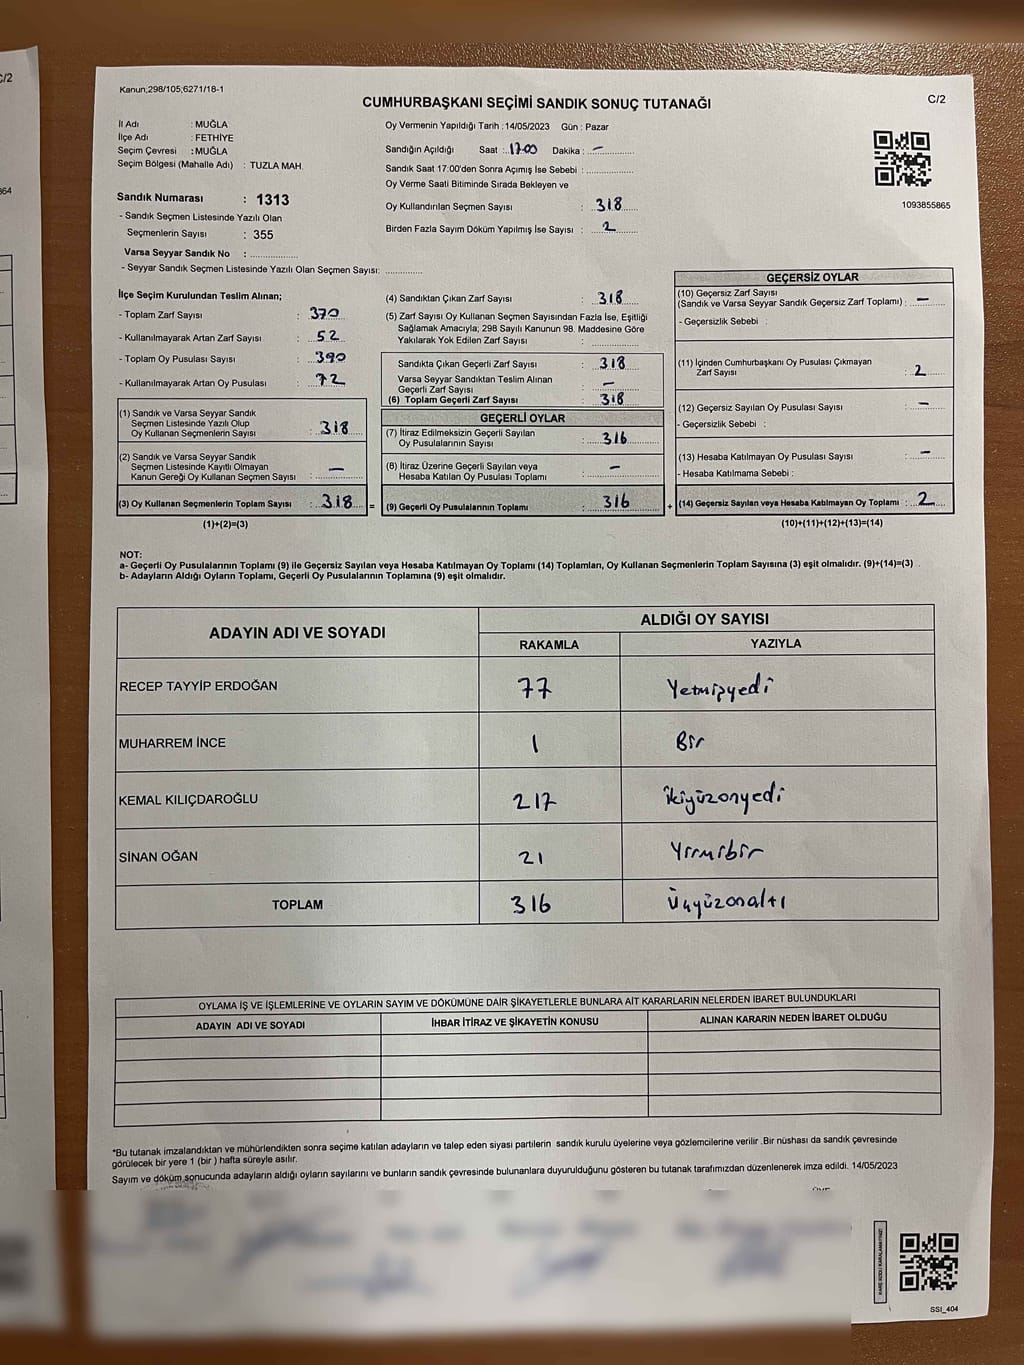 C/2
Kanun;298/105;6271/18-1
CUMHURBAŞKANI SEÇİMİ SANDIK SONUÇ TUTANAĞI
C/2
İl Adı : MUĞLA
İlçe Adı : FETHİYE
Seçim Çevresi : MUĞLA
Seçim Bölgesi (Mahalle Adı) : TUZLA MAH.
Sandık Numarası : 1313
- Sandık Seçmen Listesinde Yazılı Olan
Seçmenlerin Sayısı : 355
Varsa Seyyar Sandık No :
- Seyyar Sandık Seçmen Listesinde Yazılı Olan Seçmen Sayısı:
Oy Vermenin Yapıldığı Tarih : 14/05/2023 Gün : Pazar
Sandığın Açıldığı Saat : 17:00 Dakika : -
Sandık Saat 17:00'den Sonra Açımış İse Sebebi :
Oy Verme Saati Bitiminde Sırada Bekleyen ve
Oy Kullandırılan Seçmen Sayısı : 318
Birden Fazla Sayım Döküm Yapılmış İse Sayısı : 2
1093855865
İlçe Seçim Kurulundan Teslim Alınan;
- Toplam Zarf Sayısı : 370
- Kullanılmayarak Artan Zarf Sayısı : 52
- Toplam Oy Pusulası Sayısı : 390
- Kullanılmayarak Artan Oy Pusulası : 72
(1) Sandık ve Varsa Seyyar Sandık
Seçmen Listesinde Yazılı Olup
Oy Kullanan Seçmenlerin Sayısı : 318
(2) Sandık ve Varsa Seyyar Sandık
Seçmen Listesinde Kayıtlı Olmayan
Kanun Gereği Oy Kullanan Seçmen Sayısı : -
(3) Oy Kullanan Seçmenlerin Toplam Sayısı : 318 =
(1)+(2)=(3)
(4) Sandıktan Çıkan Zarf Sayısı : 318
(5) Zarf Sayısı Oy Kullanan Seçmen Sayısından Fazla İse, Eşitliği
Sağlamak Amacıyla; 298 Sayılı Kanunun 98. Maddesine Göre
Yakılarak Yok Edilen Zarf Sayısı :
Sandıkta Çıkan Geçerli Zarf Sayısı : 318
Varsa Seyyar Sandıktan Teslim Alınan
Geçerli Zarf Sayısı : -
(6) Toplam Geçerli Zarf Sayısı : 318
GEÇERLİ OYLAR
(7) İtiraz Edilmeksizin Geçerli Sayılan
Oy Pusulalarının Sayısı : 316
(8) İtiraz Üzerine Geçerli Sayılan veya
Hesaba Katılan Oy Pusulası Toplamı : -
(9) Geçerli Oy Pusulalarının Toplamı : 316 +
GEÇERSİZ OYLAR
(10) Geçersiz Zarf Sayısı
(Sandık ve Varsa Seyyar Sandık Geçersiz Zarf Toplamı) : -
- Geçersizlik Sebebi :
(11) İçinden Cumhurbaşkanı Oy Pusulası Çıkmayan
Zarf Sayısı : 2
(12) Geçersiz Sayılan Oy Pusulası Sayısı : -
- Geçersizlik Sebebi :
(13) Hesaba Katılmayan Oy Pusulası Sayısı : -
- Hesaba Katılmama Sebebi :
(14) Geçersiz Sayılan veya Hesaba Katılmayan Oy Toplamı : 2
(10)+(11)+(12)+(13)=(14)
NOT:
a- Geçerli Oy Pusulalarının Toplamı (9) ile Geçersiz Sayılan veya Hesaba Katılmayan Oy Toplamı (14) Toplamları, Oy Kullanan Seçmenlerin Toplam Sayısına (3) eşit olmalıdır. (9)+(14)=(3) .
b- Adayların Aldığı Oyların Toplamı, Geçerli Oy Pusulalarının Toplamına (9) eşit olmalıdır.
ADAYIN ADI VE SOYADI
ALDIĞI OY SAYISI
RAKAMLA YAZIYLA
RECEP TAYYİP ERDOĞAN 77 Yetmişyedi
MUHARREM İNCE 1 Bir
KEMAL KILIÇDAROĞLU 217 ikiyüzonyedi
SİNAN OĞAN 21 Yirmibir
TOPLAM 316 Üçyüzonaltı
OYLAMA İŞ VE İŞLEMLERİNE VE OYLARIN SAYIM VE DÖKÜMÜNE DAİR ŞİKAYETLERLE BUNLARA AİT KARARLARIN NELERDEN İBARET BULUNDUKLARI
ADAYIN ADI VE SOYADI İHBAR İTİRAZ VE ŞİKAYETİN KONUSU ALINAN KARARIN NEDEN İBARET OLDUĞU
*Bu tutanak imzalandıktan ve mühürlendikten sonra seçime katılan adayların ve talep eden siyasi partilerin sandık kurulu üyelerine veya gözlemcilerine verilir .Bir nüshası da sandık çevresinde
görülecek bir yere 1 (bir ) hafta süreyle asılır.
Sayım ve döküm sonucunda adayların aldığı oyların sayılarını ve bunların sandık çevresinde bulunanlara duyurulduğunu gösteren bu tutanak tarafımızdan düzenlenerek imza edildi. 14/05/2023
SSI_404